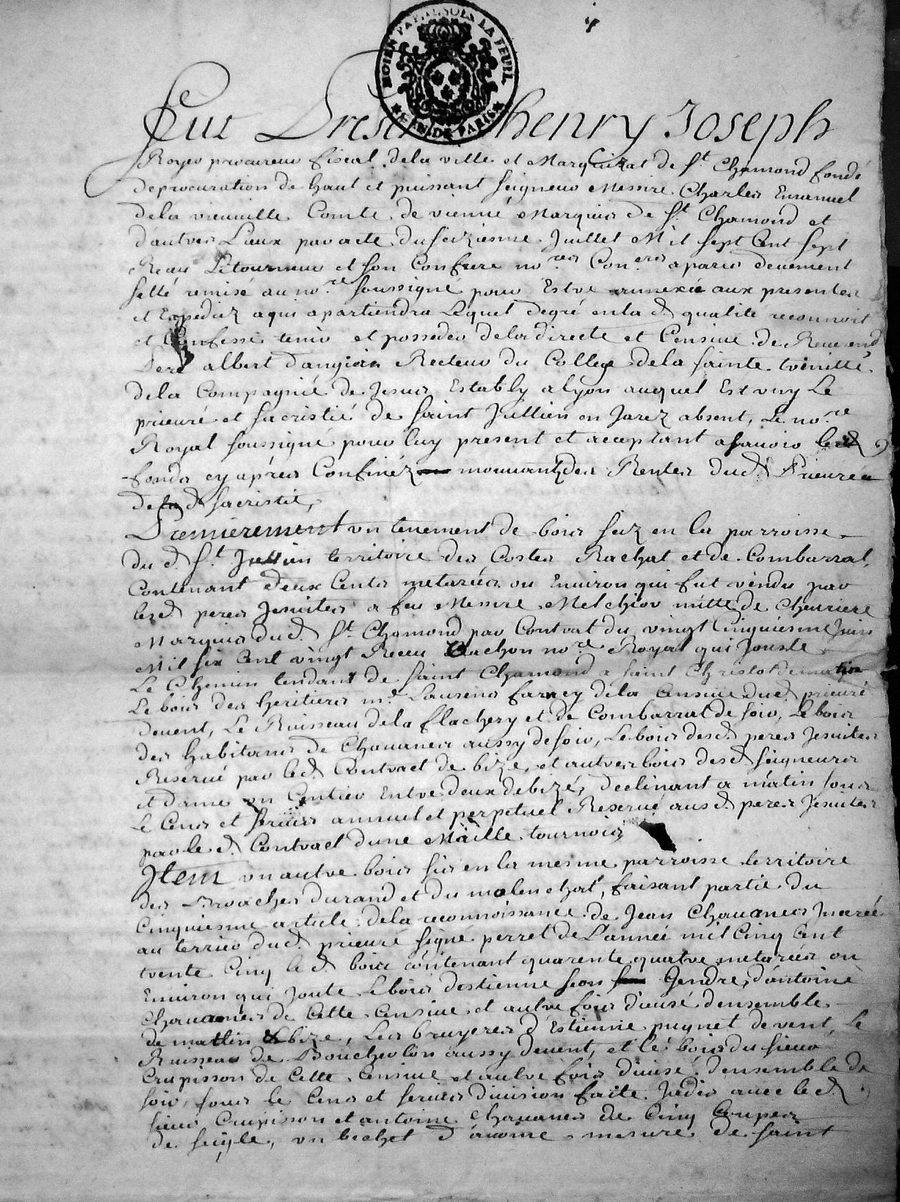 MOYEN PAP. SOLS LA FEUIL
GEN DE PARIS
Fut Present henry Joseph
Royer procureur fiscal de la ville et Marquizat de St. Chamond fondé
de procuration de haut et puissant seigneur Messire Charles Emanuel
de la vieuille Comte de vienne Marquis de St. Chamond et
d'autres Lieux par acte du seiziesme Juillet Mil sept Cent sept
Receu Letourneur et son Confrere nores. Coners. a paris deuement
sellé remise au nore. soussigné pour Estre annexée aux presentes
et Expediez a qui apartiendra Lequel degré en lad. qualité reconnoit
et Confesse tenir et posseder de la directe et Censiue de Reuerend
Pere albert d'angion Recteur du College de la sainte trinitté
de la Compagnié de Jesus Estably a lyon auquel Est uny Le
prieuré et sacristié de saint Jullien en Jarez absent, Le nore.
Royal soussigné pour luy present et acceptant a sauoir les
fonds cy apres Confinéz mouuantz des Rentes dud. Prieuré e
de la d. sacristie,
Premierement un tenement de bois siz en la parroisse
du d. St. Jullien territoire des Costes Rachat et de Combarrat,
Contenant deux Cents metarées ou Enuiron qui fut vendu par
lesd. peres Jesuites a feu Messire Melchior mitte de Cheuriere
Marquis dud. St. Chamond par Contrat du vingt Cinquiesme Juin
Mil six Cent vingt Receu Rachon nore. Royal qui Jouste
Le Chemin tendant de Saint Chamond a saint Christot de matin
Le bois des heritiers mr. Laurens farney de la Censiue dud. prieuré
de uent, Le Ruisseau de la flachery et de Combarrat de soir, Le bois
des habitans de Chauanes aussy de soir, Le bois desd. peres Jesuites
Reserué par led. Contract de bize, et autres bois desd. seigneurs
et dame un Sentier Entre deux de bizé, declinant a matin sous
Le Cens et seruis annuel et perpetuel Reserué ausd. peres Jesuites
par le d. Contract d'une Maille tournois
Item un autre bois sis en la mesme parroisse territoire
des Broaches durand et du molen chat, faisant partie du
Cinquiesme article de la reconnoissance de Jean Chauanes Incerée
au terrier dud. prieuré signé perret de L'année mil Cinq Cent
trente Cinq le d. bois contenant quarente quatre metarées ou
Enuiron qui Joute Le bois d'estienne Gendre d'antoine
Chauanes de Cette Censiue et autre fois d'ensemble
de matin & bize, Les bruyeres d'Estienne puynet de vent, Le
Ruisseau de Boucheton aussy de uent, et le bois du sieur
Crupisson de Cette Censiue et autre fois d'ensemble de
soir, sous le Cens et seruis diuision faite Jadis auec led.
sieur Crupisson et antoine Chauanes de Cinq Coupes
de seigle, un bichet d'auoine mesure de saint